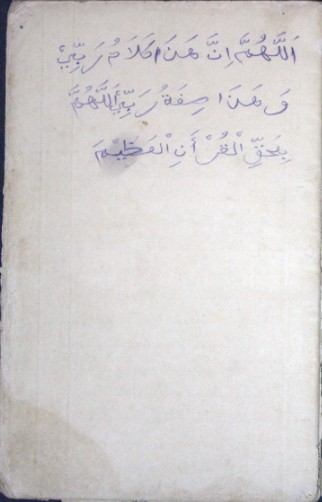 اَللَّهُمَّ اِنَّ هَذَا كَلَامُ رَبِّي
وَ هَذَا صِفَةُ رَبِّي اَللَّهُمَّ
بِحَقِّ الْقُرْأَنِ الْعَظِيْمَ